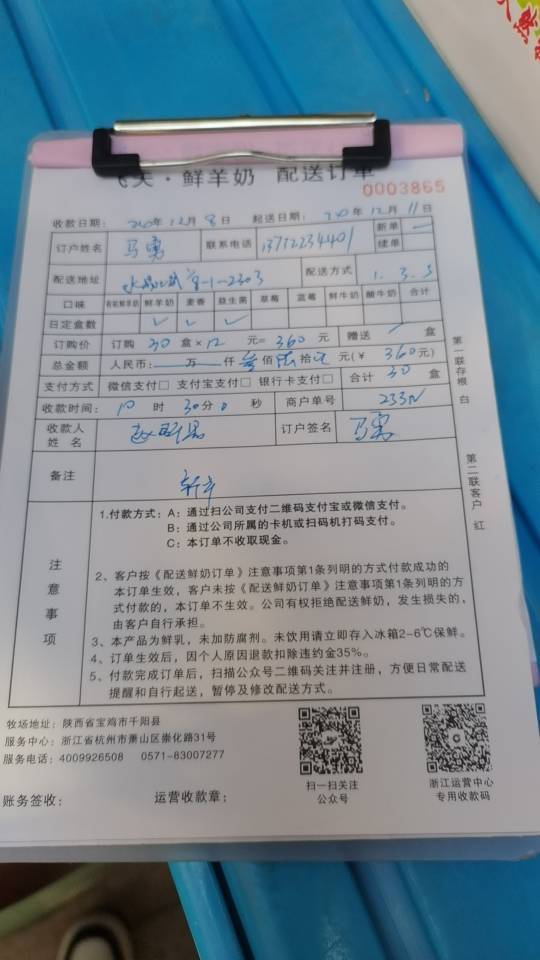 天·鲜羊奶 配送订单
0003865
收款日期: 2020年12月8日 起送日期: 2020年12月11日
订户姓名 马勇 联系电话 13712234401 新单 续单
配送地址 1-2303 配送方式 1.3.5
口味 有机鲜羊奶 鲜羊奶 麦香 益生菌 草莓 蓝莓 鲜牛奶 酸牛奶 合计
日定盒数 ✓ ✓ ✓
订购价 订购 30 盒×12 元=360元 赠送 盒
总金额 人民币: 万 仟 叁佰陆拾元(¥ 360元)
支付方式 微信支付□ 支付宝支付□ 银行卡支付□ 合计 30 盒
收款时间: 10时30分0秒 商户单号
收款人姓名 订户签名 马勇
备注 新订
注意事项
1.付款方式: A: 通过扫公司支付二维码支付宝或微信支付。
B: 通过公司所属的卡机或扫码机打码支付。
C: 本订单不收取现金。
2、客户按《配送鲜奶订单》注意事项第1条列明的方式付款成功的
本订单生效,客户未按《配送鲜奶订单》注意事项第1条列明的方
式付款的,本订单不生效。公司有权拒绝配送鲜奶,发生损失的,
由客户自行承担。
3、本产品为鲜乳,未加防腐剂。未饮用请立即存入冰箱2-6℃保鲜。
4、订单生效后,因个人原因退款扣除违约金35%。
5、付款完成订单后,扫描公众号二维码关注并注册,方便日常配送
提醒和自行起送,暂停及修改配送方式。
第一联存根 白
第二联客户 红
牧场地址: 陕西省宝鸡市千阳县
服务中心: 浙江省杭州市萧山区崇化路31号
服务电话: 4009926508 0571-83007277
扫一扫关注
公众号
浙江运营中心
专用收款码
账务签收: 运营收款章: